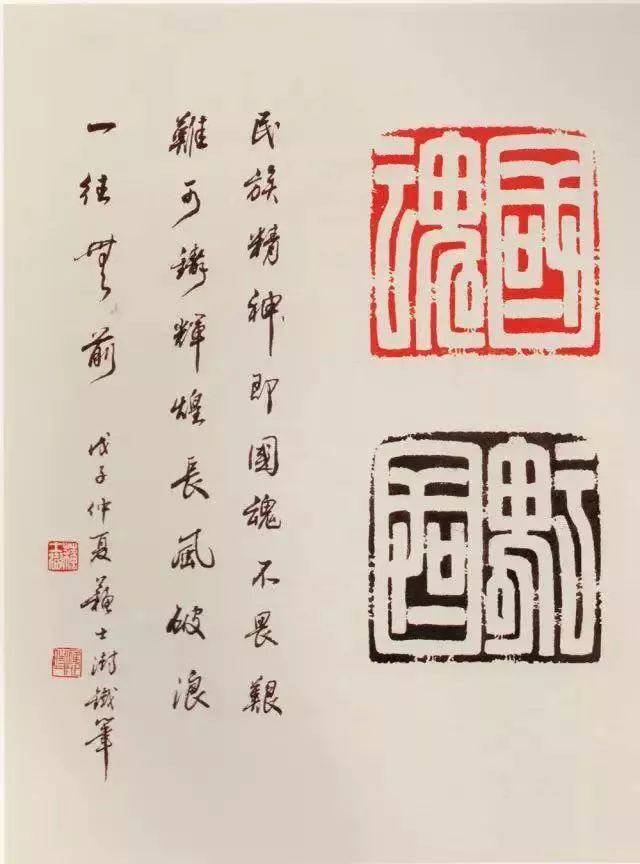 國魂
民族精神即國魂不畏艱
難可鑄輝煌長風破浪
一往無前
戊子仲夏蘇士澍鐵筆